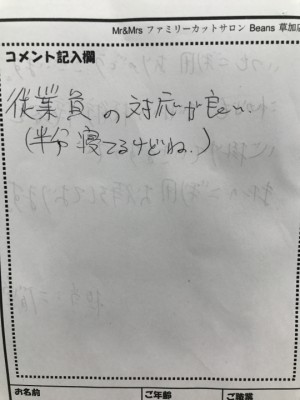 Mr&Mrs ファミリーカットサロン Beans 草加店
コメント記入欄
従業員の対応が良い。
(半分寝てるけどね。)
お名前
ご年齢
ご職業